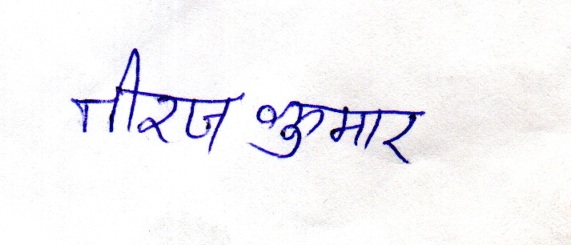 नीरज कुमार